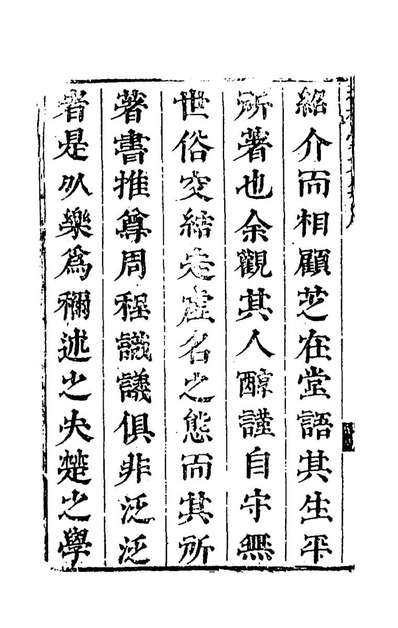 紹介而相顧芝在堂語其生平
所著也余觀其人醇謹自守無
世俗交結走虛名之態而其所
著書推尊周程識議俱非泛泛
者是以樂為稱述之夫楚之學